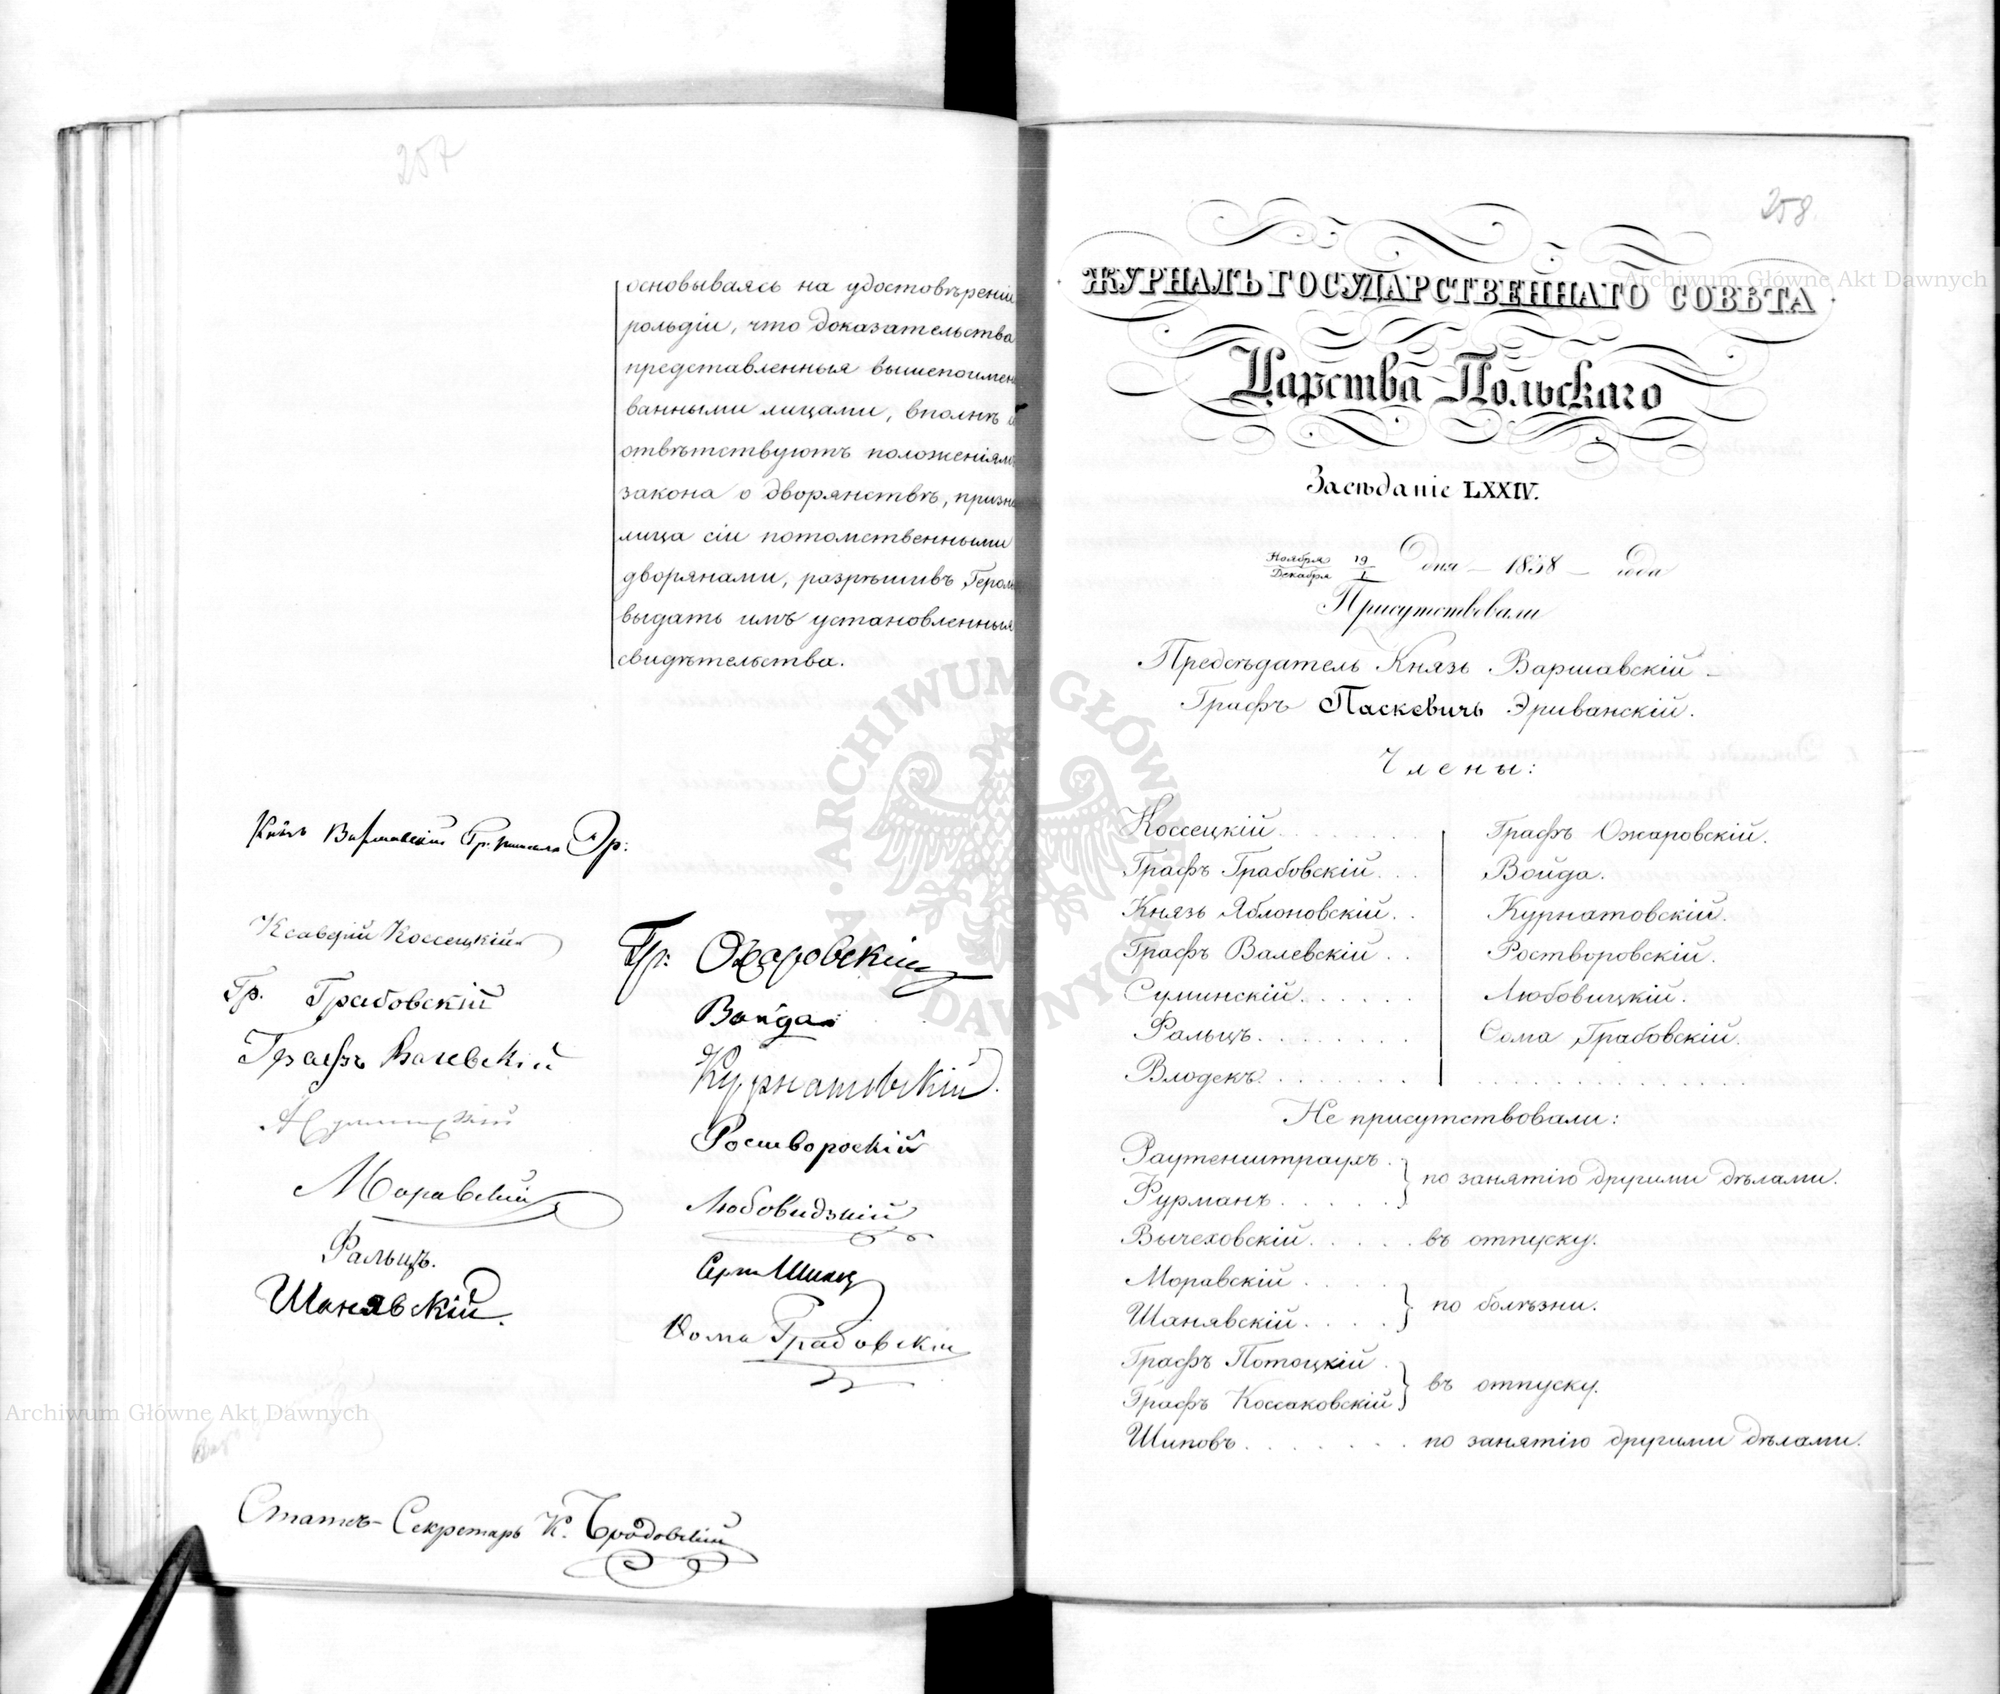 257
основываясь на удостовѣреніи
рольдіи, что доказательства
представленныя вышепоимен
ванными лицами, вполнѣ с
отвѣтствуютъ положеніямъ
закона о дворянствѣ, призна
лица сіи потомственными
дворянами, разрѣшивъ Герол
выдать имъ установленныя
свидѣтельства.
Князь Варшавскій Гр. Эр:
Ксаверій Коссецкій
Гр. Грабовскій
Графъ Валевскій
Моравскій
Фальцъ.
Шанявскій.
Гр: Ожаровскій
Войда
Курнатовскій.
Ростворовскій
Любовидзкій
Ѳома Грабовскій
Статсъ-Секретарь К. Бродовскій
258
ЖУРНАЛЪ ГОСУДАРСТВЕННАГО СОВѢТА
Царства Польскаго
Засѣданіе LXXIV.
Ноября 19 / Декабря 1 дня – 1838 – года
Присутствовали
Предсѣдатель Князь Варшавскій –
Графъ Паскевичъ Эриванскій.
Члены:
Коссецкій . . . . . . . Графъ Ожаровскій.
Графъ Грабовскій . . . Войда.
Князь Яблоновскій . . Курнатовскій.
Графъ Валевскій . . Ростворовскій.
Суминскій . . . . . . Любовицкій.
Фальцъ . . . . . . . . Ѳома Грабовскій.
Влодекъ . . . . . . . .
Не присутствовали:
Раутенштраухъ .
Фурманъ . . . . . } по занятію другими дѣлами.
Вычеховскій . . . . . въ отпуску.
Моравскій . . . .
Шанявскій . . . . . } по болѣзни.
Графъ Потоцкій .
Графъ Коссаковскій } въ отпуску.
Шиповъ . . . . . . . по занятію другими дѣлами.
Archiwum Główne Akt Dawnych
Archiwum Główne Akt Dawnych
ARCHIWUM GŁÓWNE AKT DAWNYCH